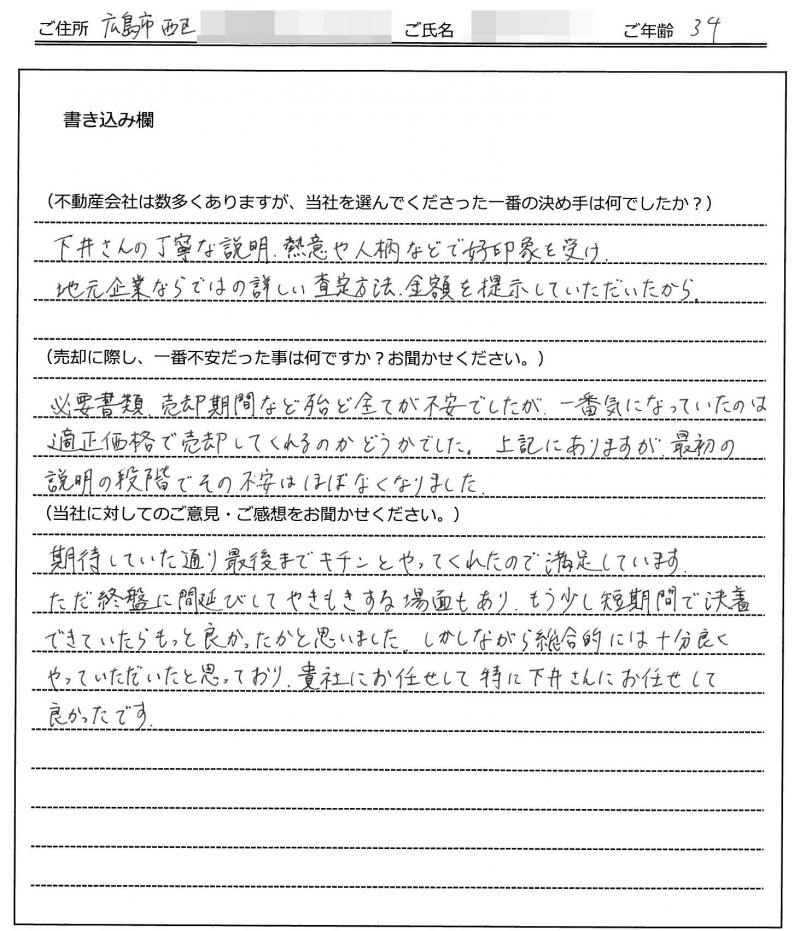 ご住所 広島市西区 ご氏名 ご年齢 34
書き込み欄
（不動産会社は数多くありますが、当社を選んでくださった一番の決め手は何でしたか？）
下井さんの丁寧な説明、熱意や人柄などで好印象を受け、
地元企業ならではの詳しい査定方法、金額を提示していただいたから。
（売却に際し、一番不安だった事は何ですか？お聞かせください。）
必要書類、売却期間など殆ど全てが不安でしたが、一番気になっていたのは
適正価格で売却してくれるのかどうかでした。上記にありますが、最初の
説明の段階でその不安はほぼなくなりました。
（当社に対してのご意見・ご感想をお聞かせください。）
期待していた通り最後までキチンとやってくれたので満足しています。
ただ終盤に間延びしてやきもきする場面もあり、もう少し短期間で決着
できていたらもっと良かったかと思いました。しかしながら総合的には十分良く
やっていただいたと思っており、貴社にお任せして特に下井さんにお任せして
良かったです。